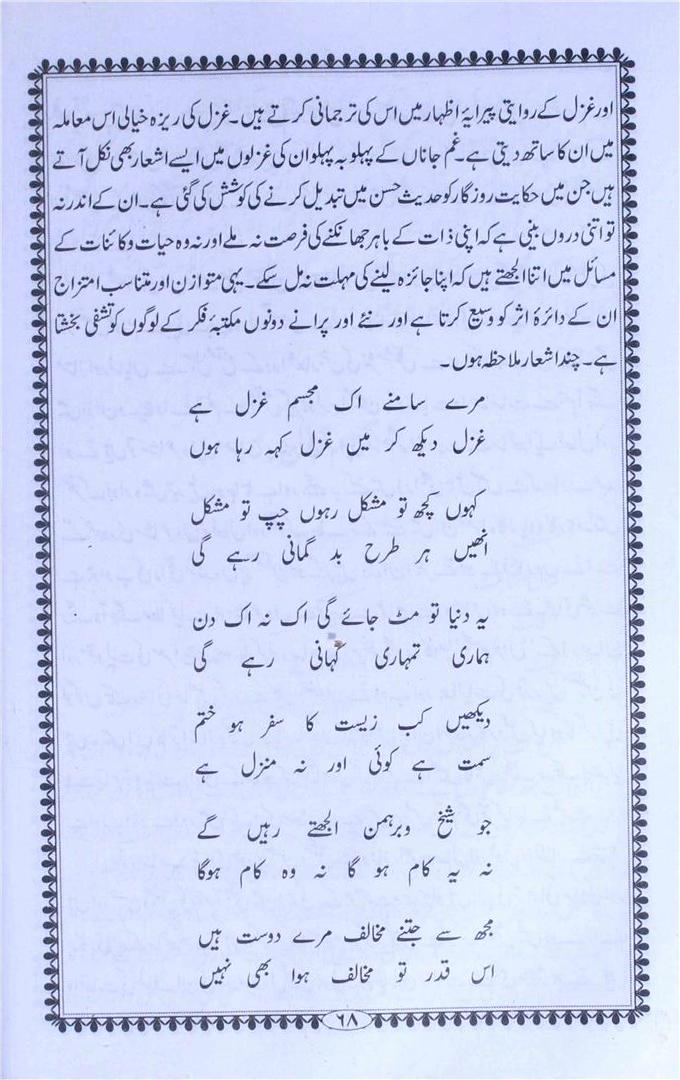 اور غزل کے روایتی پیرایۂ اظہار میں اس کی ترجمانی کرتے ہیں۔ غزل کی ریزہ خیالی اس معاملہ
میں ان کا ساتھ دیتی ہے۔ غم جاناں کے پہلو بہ پہلو ان کی غزلوں میں ایسے اشعار بھی نکل آتے
ہیں جن میں حکایت روزگار کو حدیث حسن میں تبدیل کرنے کی کوشش کی گئی ہے۔ ان کے اندر نہ
تو اتنی دروں بینی ہے کہ اپنی ذات کے باہر جھانکنے کی فرصت نہ ملے اور نہ وہ حیات و کائنات کے
مسائل میں اتنا الجھتے ہیں کہ اپنا جائزہ لینے کی مہلت نہ مل سکے۔ یہی متوازن اور متناسب امتزاج
ان کے دائرۂ اثر کو وسیع کرتا ہے اور نئے اور پرانے دونوں مکتبۂ فکر کے لوگوں کو تشفی بخشتا
ہے۔ چند اشعار ملاحظہ ہوں۔
مرے سامنے اک مجسم غزل ہے
غزل دیکھ کر میں غزل کہہ رہا ہوں
کہوں کچھ تو مشکل رہوں چپ تو مشکل
انھیں ہر طرح بد گمانی رہے گی
یہ دنیا تو مٹ جائے گی اک نہ اک دن
ہماری تمہاری کہانی رہے گی
دیکھیں کب زیست کا سفر ہو ختم
سمت ہے کوئی اور نہ منزل ہے
جو شیخ و برہمن الجھتے رہیں گے
نہ یہ کام ہو گا نہ وہ کام ہوگا
مجھ سے جتنے مخالف مرے دوست ہیں
اس قدر تو مخالف ہوا بھی نہیں
۶۸